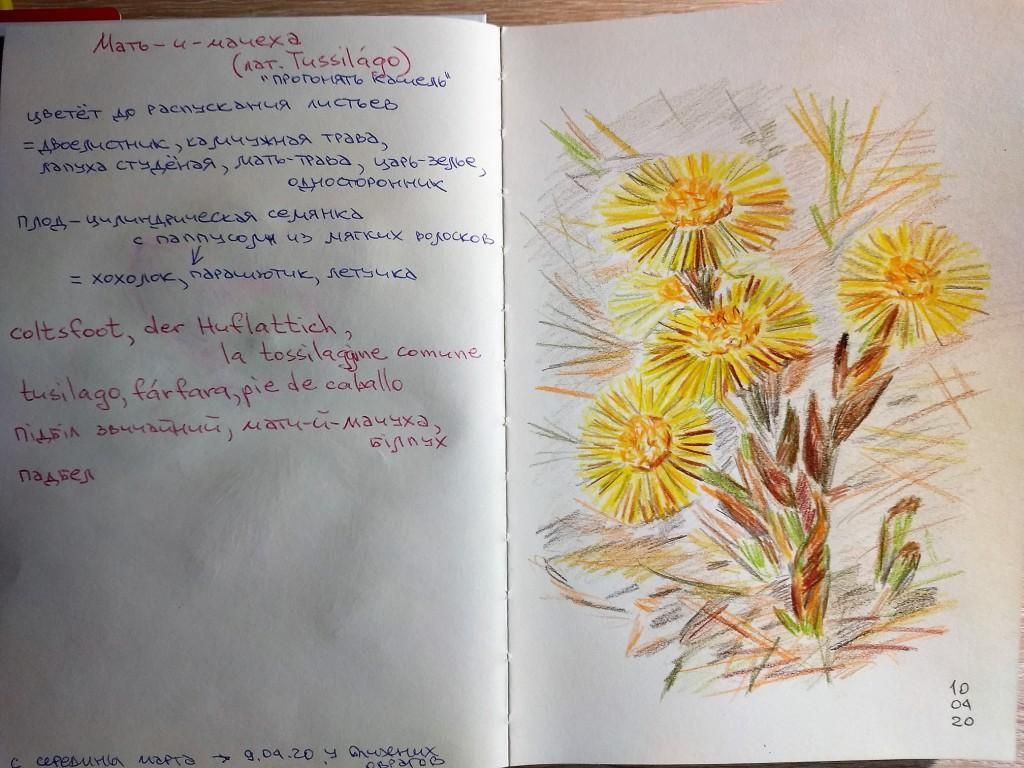 Мать-и-мачеха
(лат. Tussilágo)
"прогонять кашель"
цветёт до распускания листьев
= двоелистник, камчужная трава,
лапуха студёная, мать-трава, царь-зелье,
односторонник
плод – цилиндрическая семянка
с паппусом из мягких волосков
= хохолок, парашютик, летучка
coltsfoot, der Huflattich,
la tossilaggine comune
tusilago, fárfara, pie de caballo
підбіл звичайний, мати-й-мачуха,
білпух
падбел
с середины марта → 9.04.20 у
оврагов
10
04
20